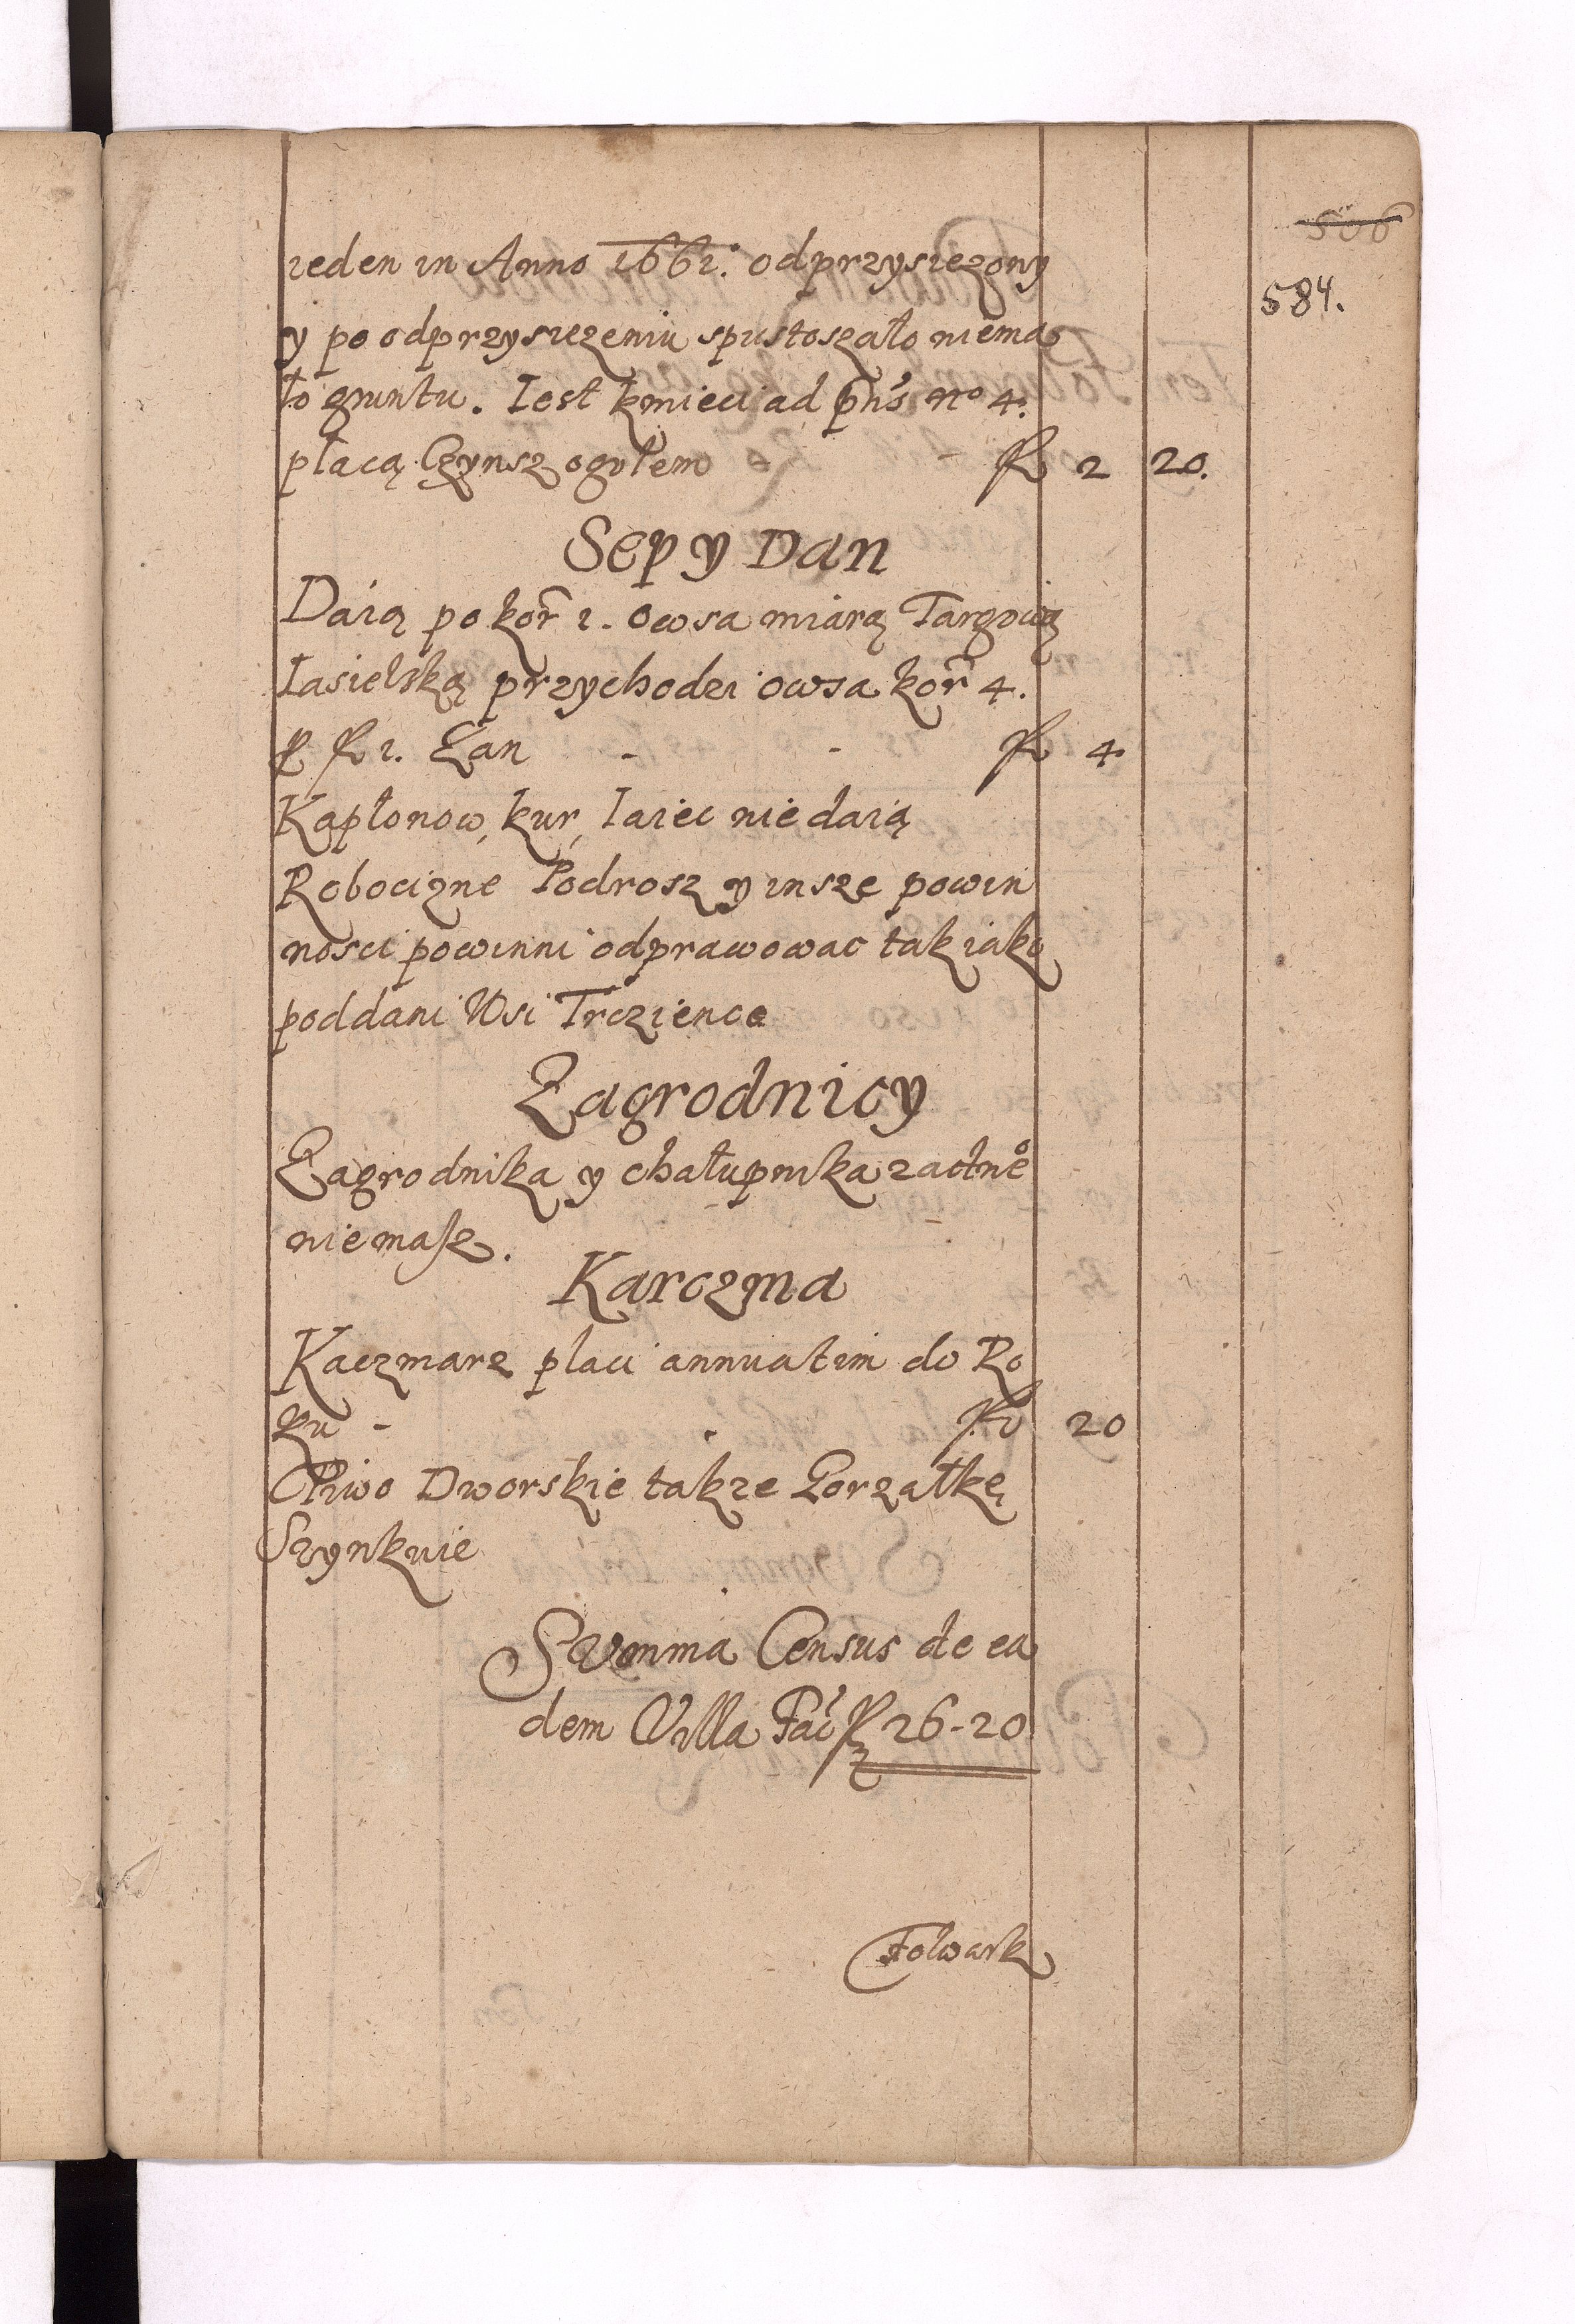 506
584.
ieden in Anno 1661. odprzysiezony
y po odprzysiezeniu spustoszało niema
ło gruntu. Iest kmieci ad pńs no 4.
płacą Czynsz ogołem fl 2 20.
Sep y Dan
Daią po kor̃ 1. Owsa miarą Targową
Iasielską przychodzi owsa kor̃ 4.
p fl 1. Łan - - fl 4.
Kapłonow, kur, Iaiec nie daią
Robociznę Podrosz y insze powin
nosci powinni odprawowac tak iako
poddani Wsi Trczience
Zagrodnicy
Zagrodnika y chałupnika zadne°
niemasz.
Karczma
Kaczmarz placi annuatim do Ro
ku - fl 20
Piwo Dworskie takze Gorzałkę
Szynkuie
Summa Census de ea
dem Villa Fac̃ fl 26-20
Folwark